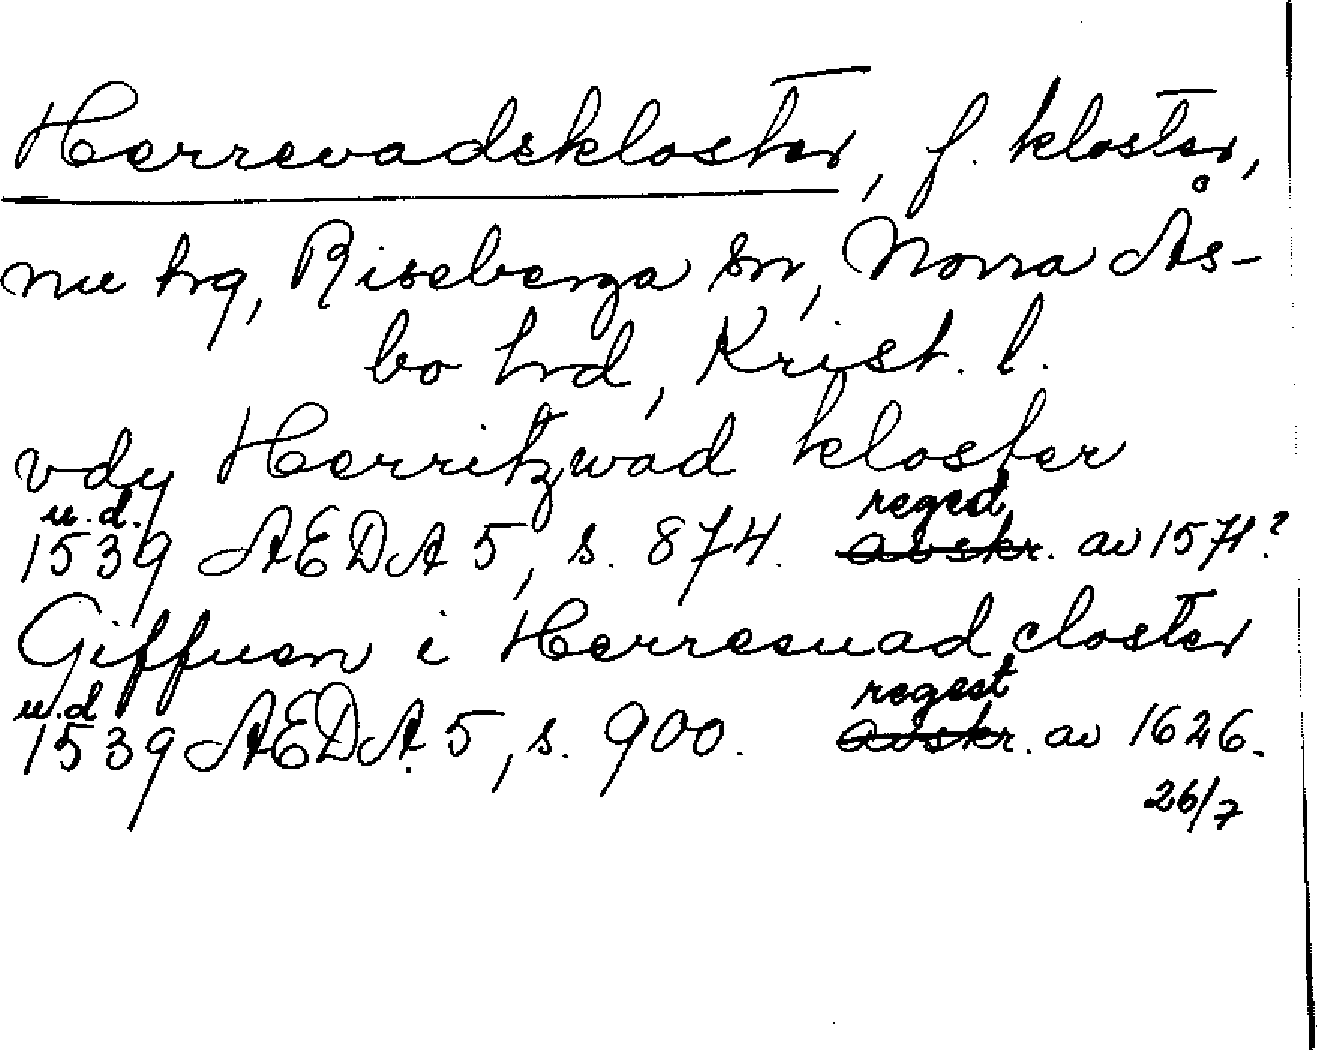 Herrevadskloster, f. kloster,
nu hrg, Riseberga sn, Norra Ås-
bo hrd, Krist. l.
vdy Herritzwad kloster
u.d. regest
1539 AEDA 5, s. 874. avskr. av 1571?
Giffuen i Herreuad closter
u.d regest
1539 AEDA 5, s. 900. avskr. av 1626.
26/7